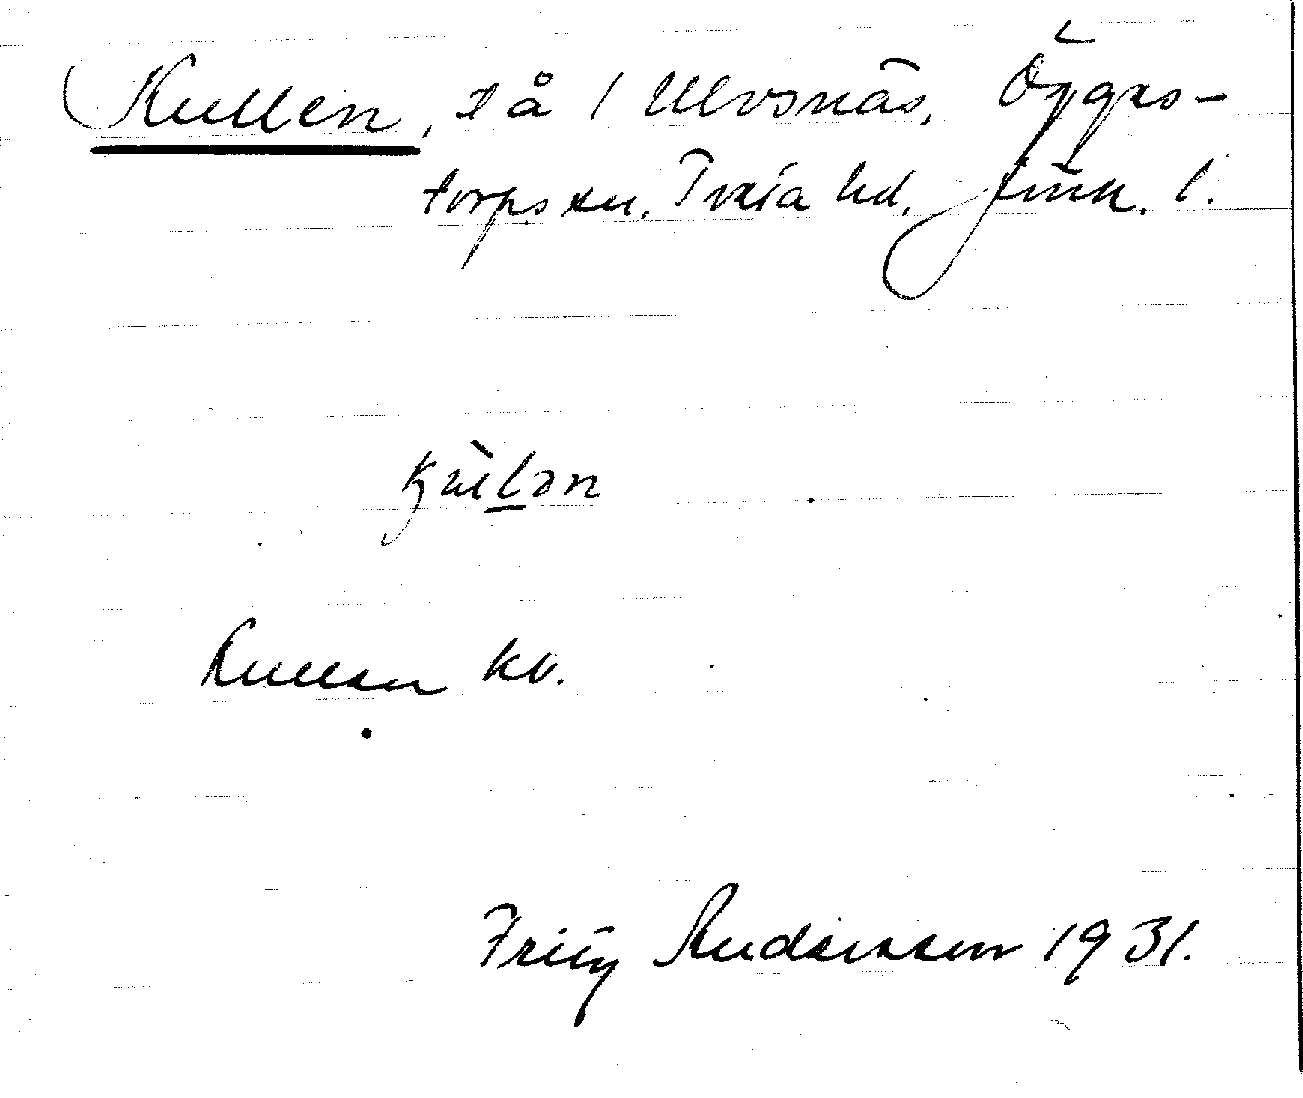 (Kullen, då / Ulvsnäs, Ögges-
torps sn. Tveta hd. Jönk. l.
Kullen kb.
Fritz Andersson 1931.